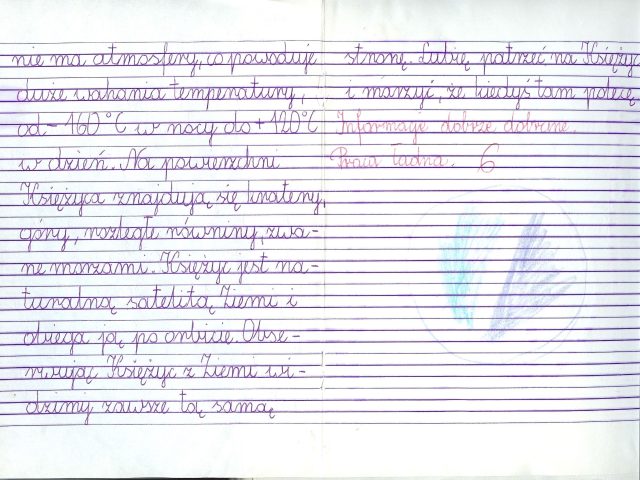 nie ma atmosfery, co powoduje
duże wahania temperatury,
od -160°C w nocy do +120°C
w dzień. Na powierzchni
Księżyca znajdują się kratery,
góry, rozległe równiny, zwa-
ne morzami. Księżyc jest na-
turalną satelitą Ziemi i
obiega ją po orbicie. Obse-
rwując Księżyc z Ziemi wi-
dzimy zawsze tą samą
stronę. Lubię patrzeć na Księżyc
i marzyć, że kiedyś tam polecę.
Informacje dobrze dobrane.
Praca ładna. 6